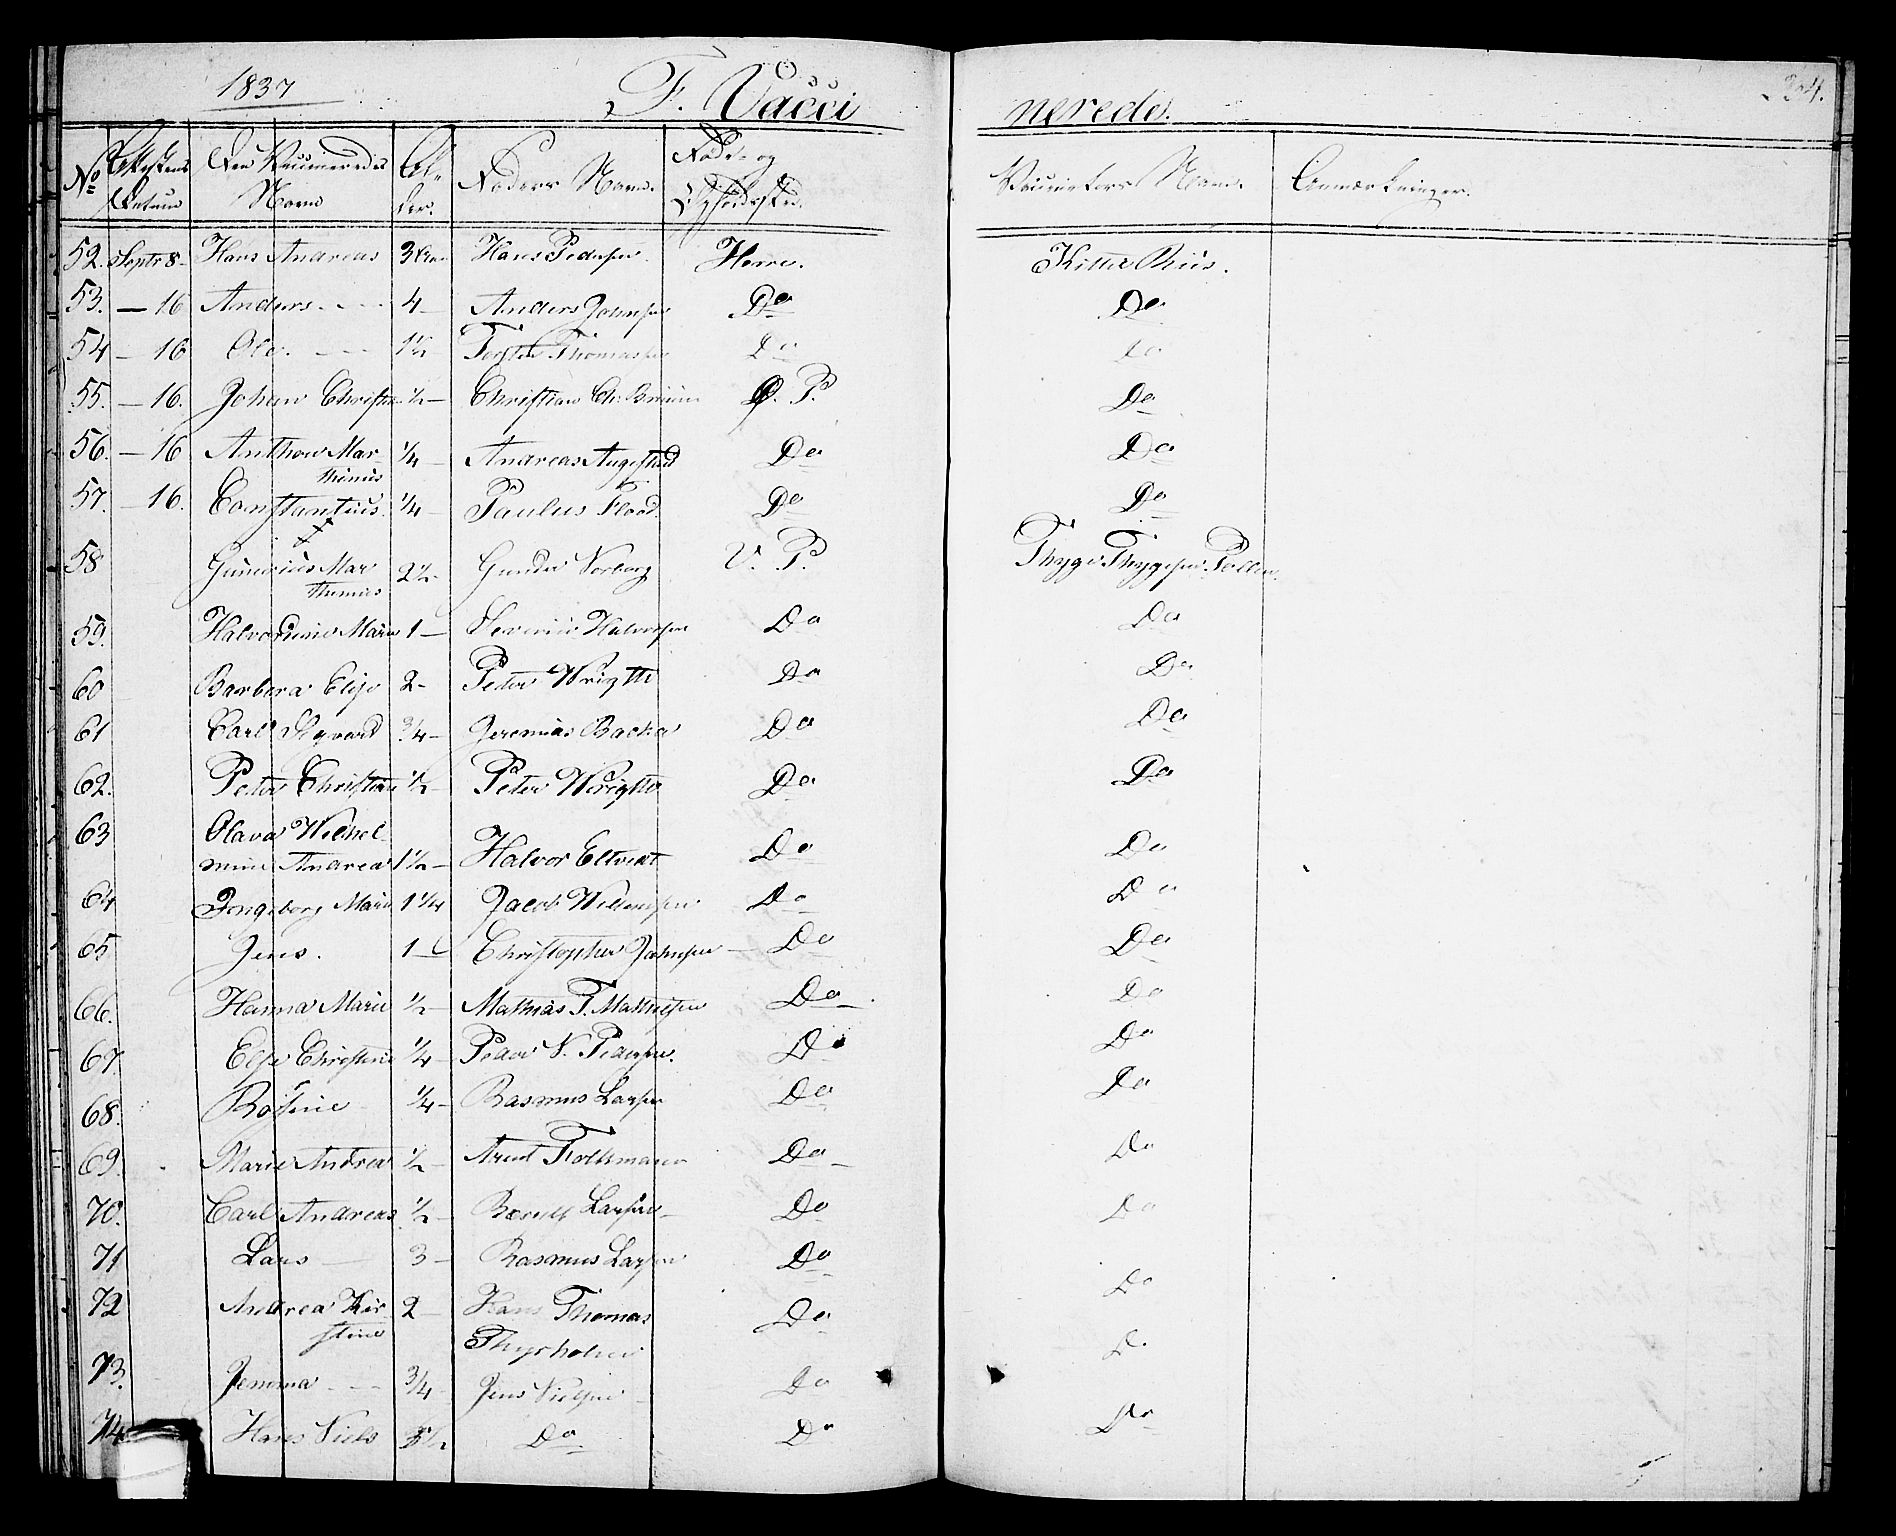 1837 F. Vacci nerede. 304.
No Attestens Datum Den Vaccineredes Navn Al- der. Faders Navn. Føde- og Opholdssted. Vaccinators Navn. Anmærkninger.
52. Septr 8 Hans Andreas 3 Hans Pedersen Herre. Kittil Riis.
53. — 16 Anders 4 — Anders Johnsen Do Do
54 — 16 Ole 1½ Torsten Thomassen Do Do
55. — 16. Johan Christian ½ — Christian Ch. Bruun Ø. P. Do
56. — 16 Anthon Mar- thinius ¼ — Andreas Augestad Do Do
57. — 16. Constantius ¼ — Paulus Flood. Do Do
58 Gunerius Mar thinius 2½ Gunder Norborg V. P. Thyge Thygesen
59. Halvordine Marie 1 — Severin Halvorsen Do Do
60 Barbera Elise 2 - Peter Wrigtte Do Do
61 Carl Sigvard ¾ — Jeremias Backa Do Do
62. Peter Christian ½ — Peter Wrigtte Do Do
63 Olava Wilhel- mine Andrea 1½ — Halvor Eltvedt Do Do
64 Ingeborg Marie 1¼ Jacob Willumsen Do Do
65 Jens. 1 — Christopher Johnsen — Do Do
66. Hanna Marie ½ — Mathias T. Mathisen Do Do
67. Else Christine ¼ — Peder N. Pedersen. Do Do
68. Rosine ¼ — Rasmus Larsen Do Do
69. Marie Andrea ½ — Arent Folkmann Do Do
70. Carl Andreas ½ — Berntt Larsen Do Do
71 Lars 3 — Rasmus Larsen Do
72 Andrea Kir- stine 2 — Hans Thomas Thyrholm Do Do
73. Jemima ¾ — Jens Nielsen Do D.
74. Hans Niels Do Do Do